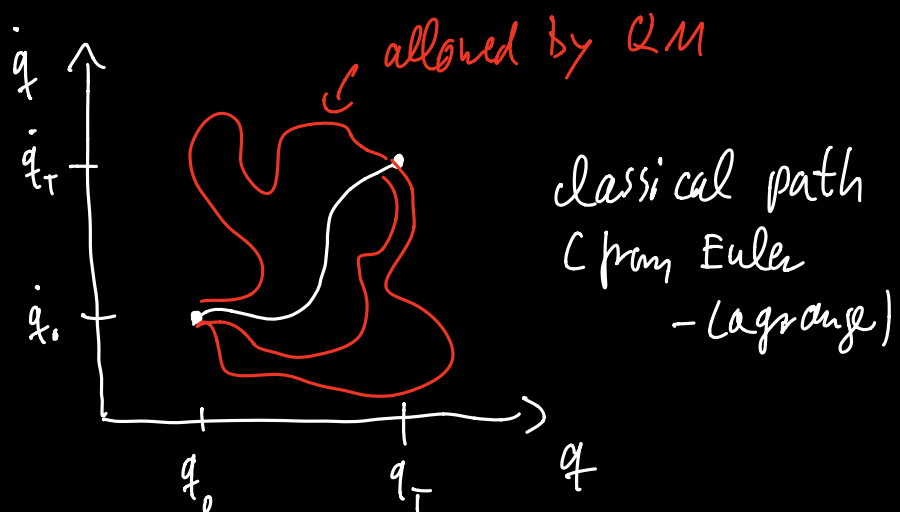 allowed by QM
q̇
q̇_T
classical path
(from Euler
-Lagrange)
q̇_0
q_0
q_T
q